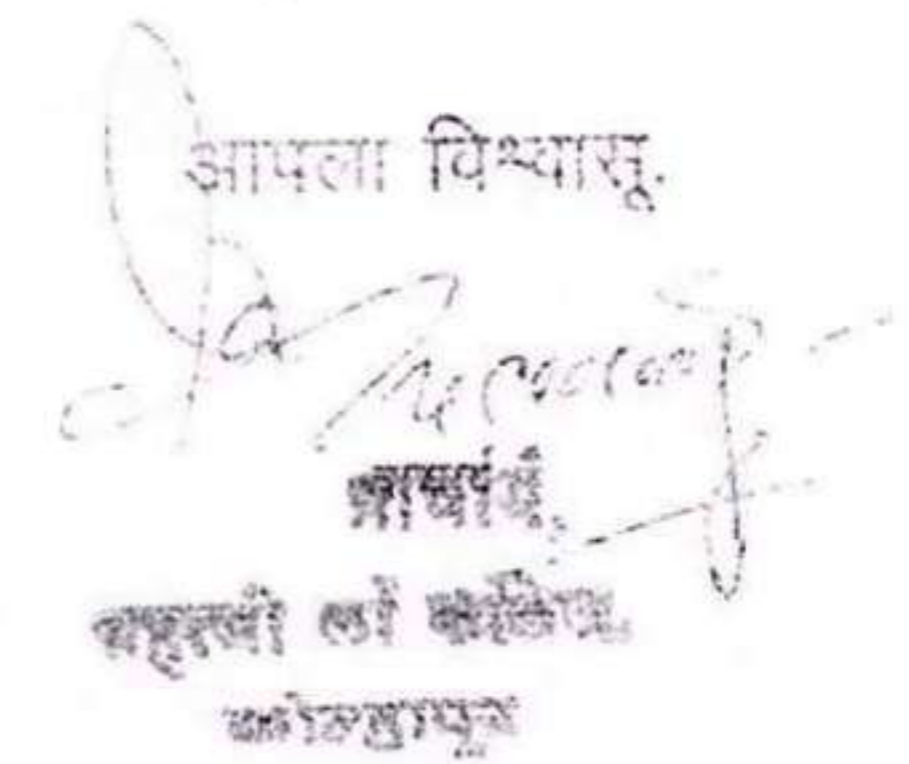 आपला विश्वासू.
प्राचार्य,
शहाजी लॉ कॉलेज,
कोल्हापूर